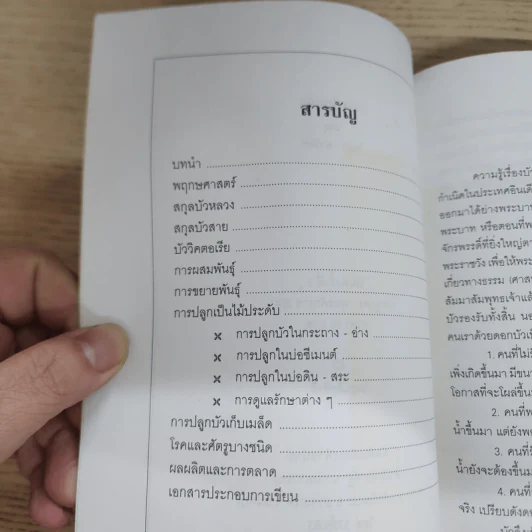 สารบัญ
บทนำ
พฤกษศาสตร์
สกุลบัวหลวง
สกุลบัวสาย
บัววิคตอเรีย
การผสมพันธุ์
การขยายพันธุ์
การปลูกเป็นไม้ประดับ
× การปลูกบัวในกระถาง - อ่าง
× การปลูกในบ่อซีเมนต์
× การปลูกในบ่อดิน - สระ
× การดูแลรักษาต่าง ๆ
การปลูกบัวเก็บเมล็ด
โรคและศัตรูบางชนิด
ผลผลิตและการตลาด
เอกสารประกอบการเขียน
ความรู้เรื่องบัว
กำเนิดในประเทศอินเดีย
ออกมาได้อย่างพระบาท
พระบาท หรือตอนที่พ
จักรพรรดิ์ที่ยิ่งใหญ่
พระราชวัง เพื่อให้พระ
เกี่ยวทางธรรม (ศาส
สัมมาสัมพุทธเจ้า
บัวรองรับทั้งสิ้น
คนเราด้วยดอกบัว
1. คนที่ไม่
เพิ่งเกิดขึ้นมา มีขน
โอกาสที่จะโผล่ขึ้น
2. คนที่พ
น้ำขึ้นมา แต่ยัง
3. คนที่
น้ำยังจะต้องขึ้นม
4. คนที่
จริง เปรียบดังดอ